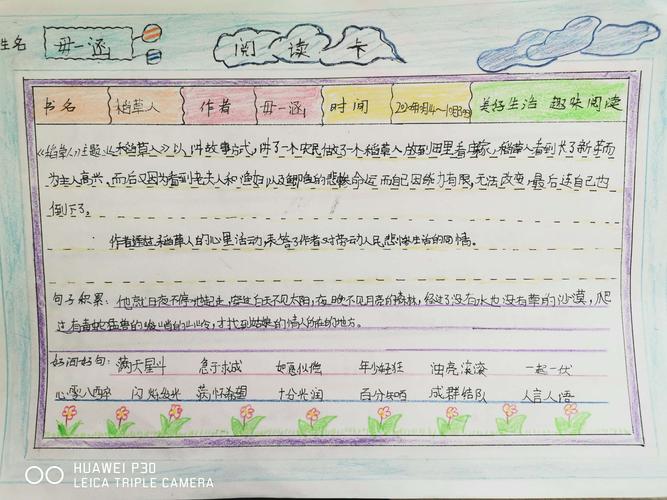 姓名 毋一涵 阅读卡
书名 稻草人 作者 毋一涵 时间 美好生活 趣味阅读
《稻草人》主题:《稻草人》以讲故事方式,讲了一个农民做了一个稻草人放到田里看庄家,稻草人看到长了新苗而
为主人高兴。而后又因为看到老夫人和渔妇以及鲫鱼的悲惨命运而自己因能力有限,无法改变,最后连自己也
倒下了。
作者透过稻草人的心里活动,表答了作者对劳动人民悲惨生活的同情。
句子积累:他就日夜不停地起走,穿过白天不见太阳,在晚不见月亮的森林,经过了没有水也没有草的沙漠,爬
过有毒蛇猛兽的 山岭,才找到姑娘的情人所在的地方。
好词好句: 满天星斗 急于求成 如愿似偿 年少轻狂 浊亮滚滚 一起一伏
闪烁发光 满怀希望 十分光润 百分 成群结队 人言人语
HUAWEI P30
LEICA TRIPLE CAMERA